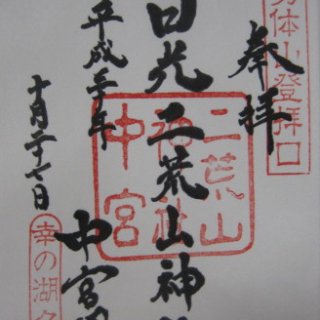 体山登拝口
奉拝
日光二荒山神
中宮
二荒山
神社
中宮
平成二十年
十月二十七日
幸の湖